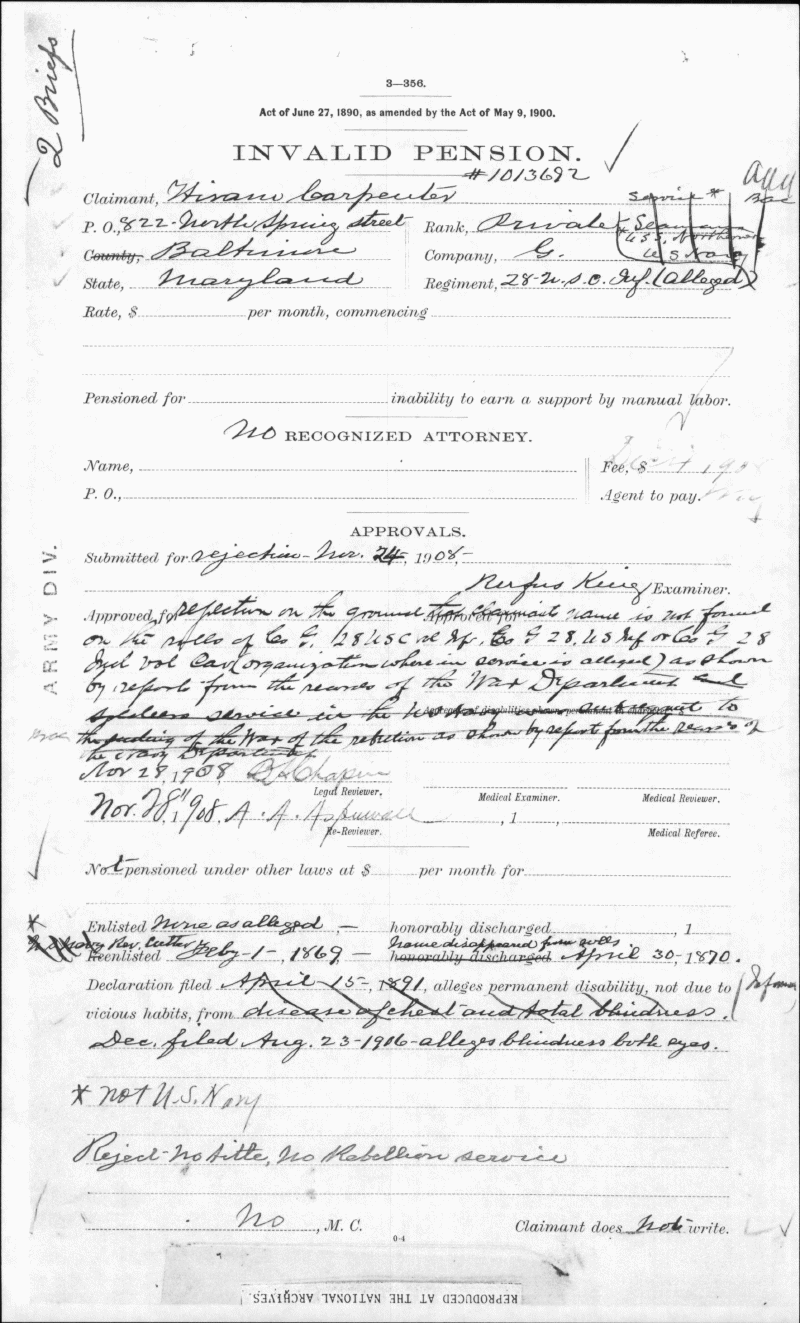 2 Briefs
3—356.
Act of June 27, 1890, as amended by the Act of May 9, 1900.
INVALID PENSION.
#1013692
Claimant, Hiram Carpenter
Service *
P. O., 822 North Spring street
Rank, Private * Seaman
U.S.S. Northerner
County, Baltimore
Company, G.
U S Navy
State, Maryland
Regiment, 28-U.S.C. Inf. (alleged)
Rate, $ per month, commencing
Pensioned for inability to earn a support by manual labor.
No RECOGNIZED ATTORNEY.
Name,
Fee, $
P. O.,
Agent to pay.
APPROVALS.
Submitted for rejection - Nov. 24, 1908,
Rufus King Examiner.
ARMY DIV.
Approved for rejection on the ground that claimant's name is not found
on the rolls of Co G, 28 U S C Vol Inf, Co G 28, U S Inf or Co G 28
Ind Vol Cav (organization wherein service is alleged) as shown
by reports from the records of the War Department and
soldiers service in the was subsequent to
the ending of the War of the rebellion as shown by report from the records of
the Navy Department
Nov 28, 1908 Chapin
Legal Reviewer.
Medical Examiner.
Medical Reviewer.
Nov. 28", 1908. A. A. Aspinwall , 1 ,
Re-Reviewer.
Medical Referee.
Not pensioned under other laws at $ per month for
* Enlisted None as alleged — honorably discharged , 1
Navy Rev. Cutter
Name disappeared from rolls
Reenlisted Feby-1-, 1869 — honorably discharged April 30, 1870.
Declaration filed April 15, 1891, alleges permanent disability, not due to
vicious habits, from disease of chest and total blindness.
Informal
Dec. filed Aug. 23-1906-alleges blindness both eyes.
* not U.S. Navy
Reject - No title, No Rebellion service
No , M. C.
Claimant does not write.
0-4
REPRODUCED AT THE NATIONAL ARCHIVES